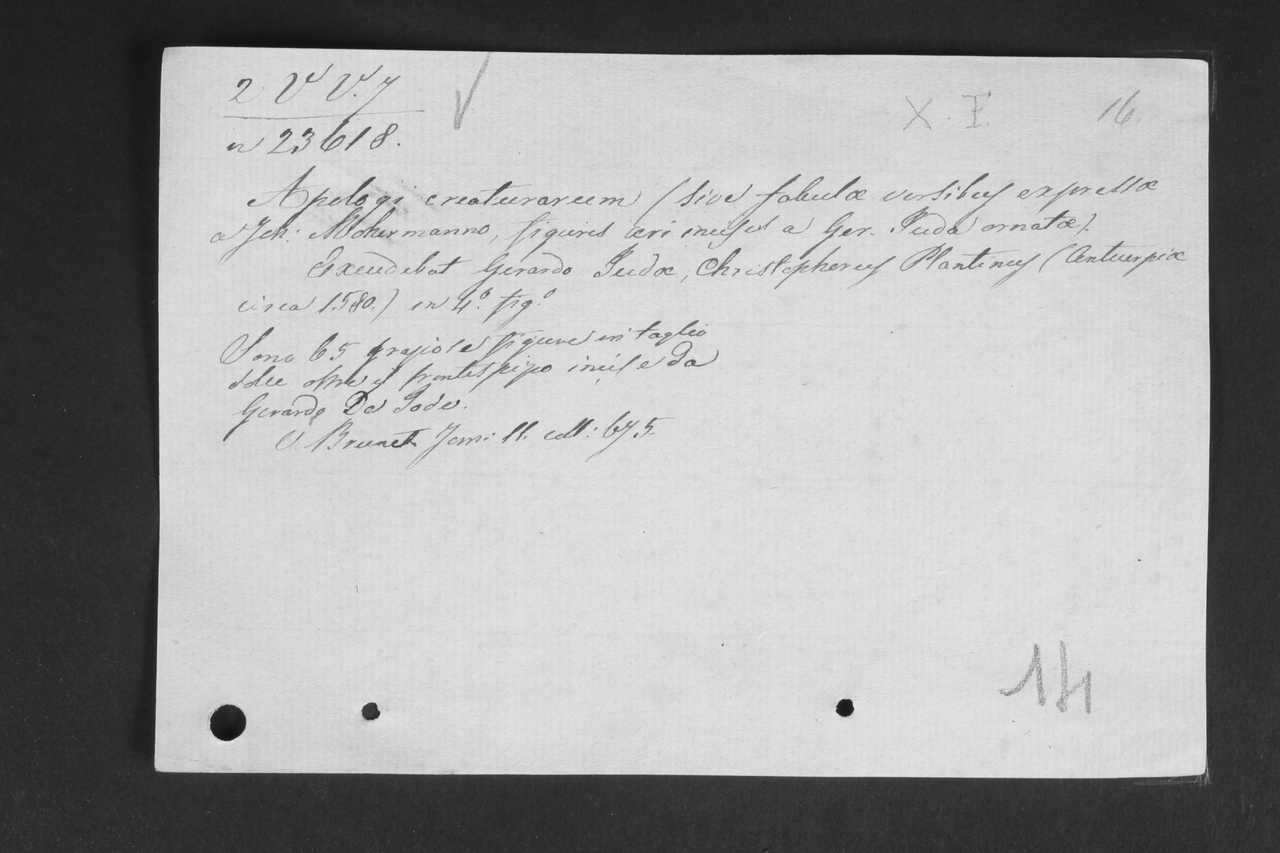 2 V V. 7
n 23618.
X. I.
16
Apologi creaturarum (sive fabulæ versibus expressæ
a Joh: Mohermanno, figuris æri incisis a Ger. Juda ornatæ).
Excudebat Gerardo Judæ, Christophorus Plantinus (Antuerpiæ
circa 1580.) in 4.º fig.º
Sono 65 graziose figure in taglio
dolce oltre il frontespizo incise da
Gerardo De Jode.
V. Brunet Tom: II. coll: 675.
14